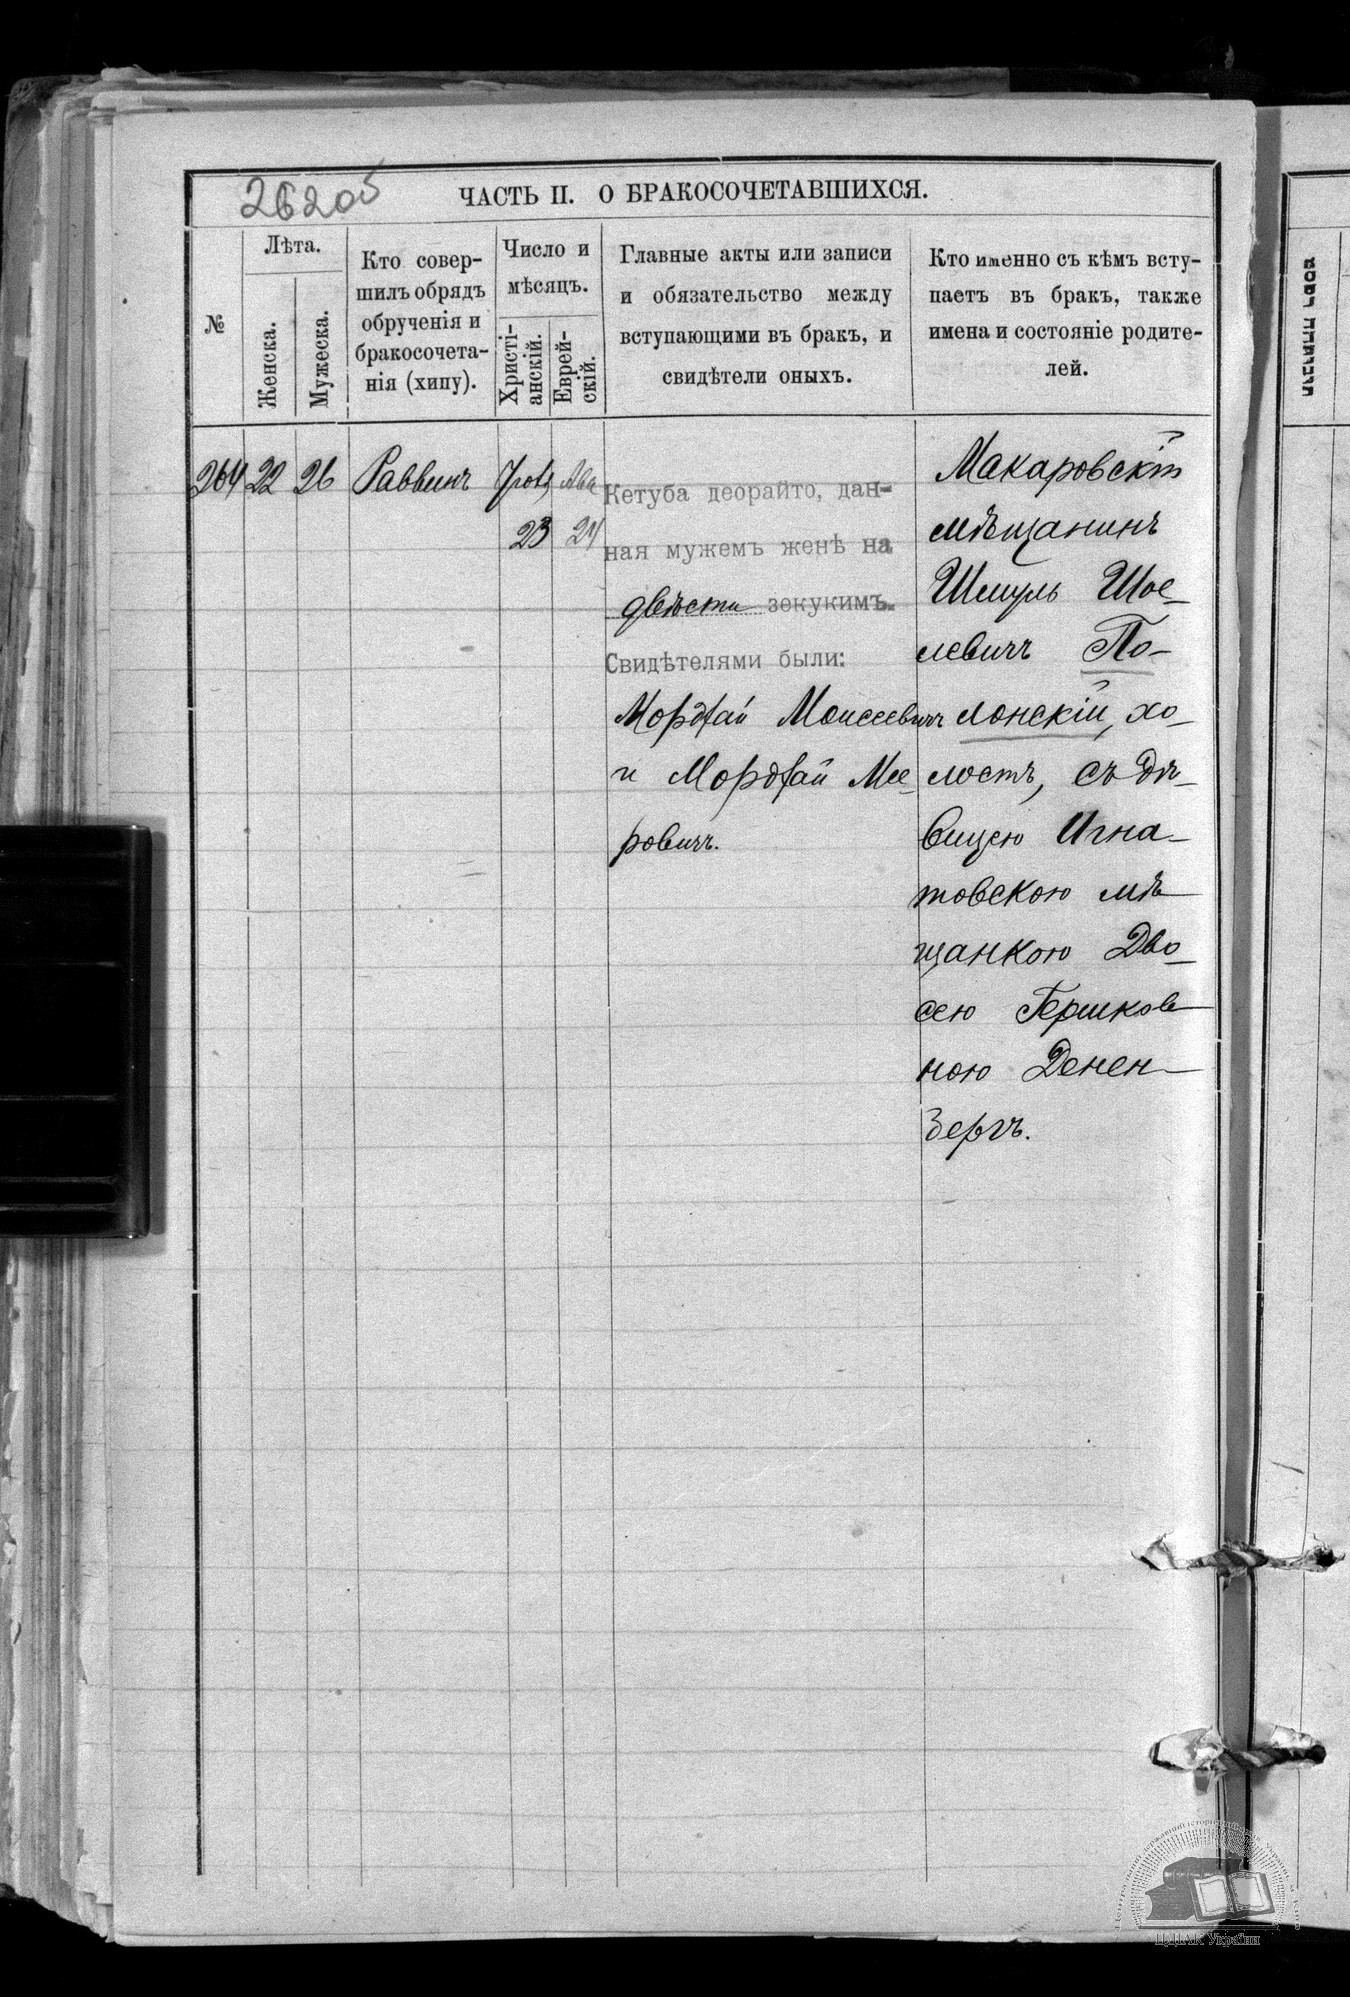 26205
ЧАСТЬ II. О БРАКОСОЧЕТАВШИХСЯ.
№
Лѣта.
Женска.
Мужеска.
Кто совер-
шилъ обрядъ
обрученія и
бракосочета-
нія (хипу).
Число и
мѣсяцъ.
Христі-
анскій.
Еврей-
скій.
Главные акты или записи
и обязательство между
вступающими въ бракъ, и
свидѣтели оныхъ.
Кто именно съ кѣмъ всту-
паетъ въ бракъ, также
имена и состояніе родите-
лей.
264
22
26
Раввинъ
23
Ава
24
Кетуба деорайто, дан-
ная мужемъ женѣ на
двѣсти зекукимъ.
Свидѣтелями были:
Мордхай Моисеевичъ
и Мордхай Мее-
ровичъ.
Макаровскій
мѣщанинъ
Шмуль Шое-
левичъ По-
лонскій, хо-
лостъ, съ дѣ-
вицею Игна-
товскою мѣ-
щанкою Дво-
сею Гершков-
ною Денен-
бергъ.
ЦДІАК України